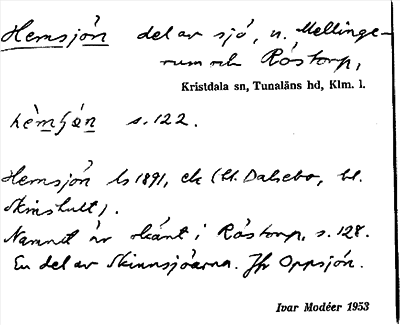 Hemsjön del av sjö, n. Mellinge-
rum och Råstorp,
Kristdala sn, Tunaläns hd, Klm. l.
s. 122.
Hemsjön Ls 1891, ek (bl. Dalsebo, bl.
Skinshult).
Namnet är okänt i Råstorp, s. 128.
En del av Skinnsjöarna. Jfr Oppsjön.
Ivar Modéer 1953